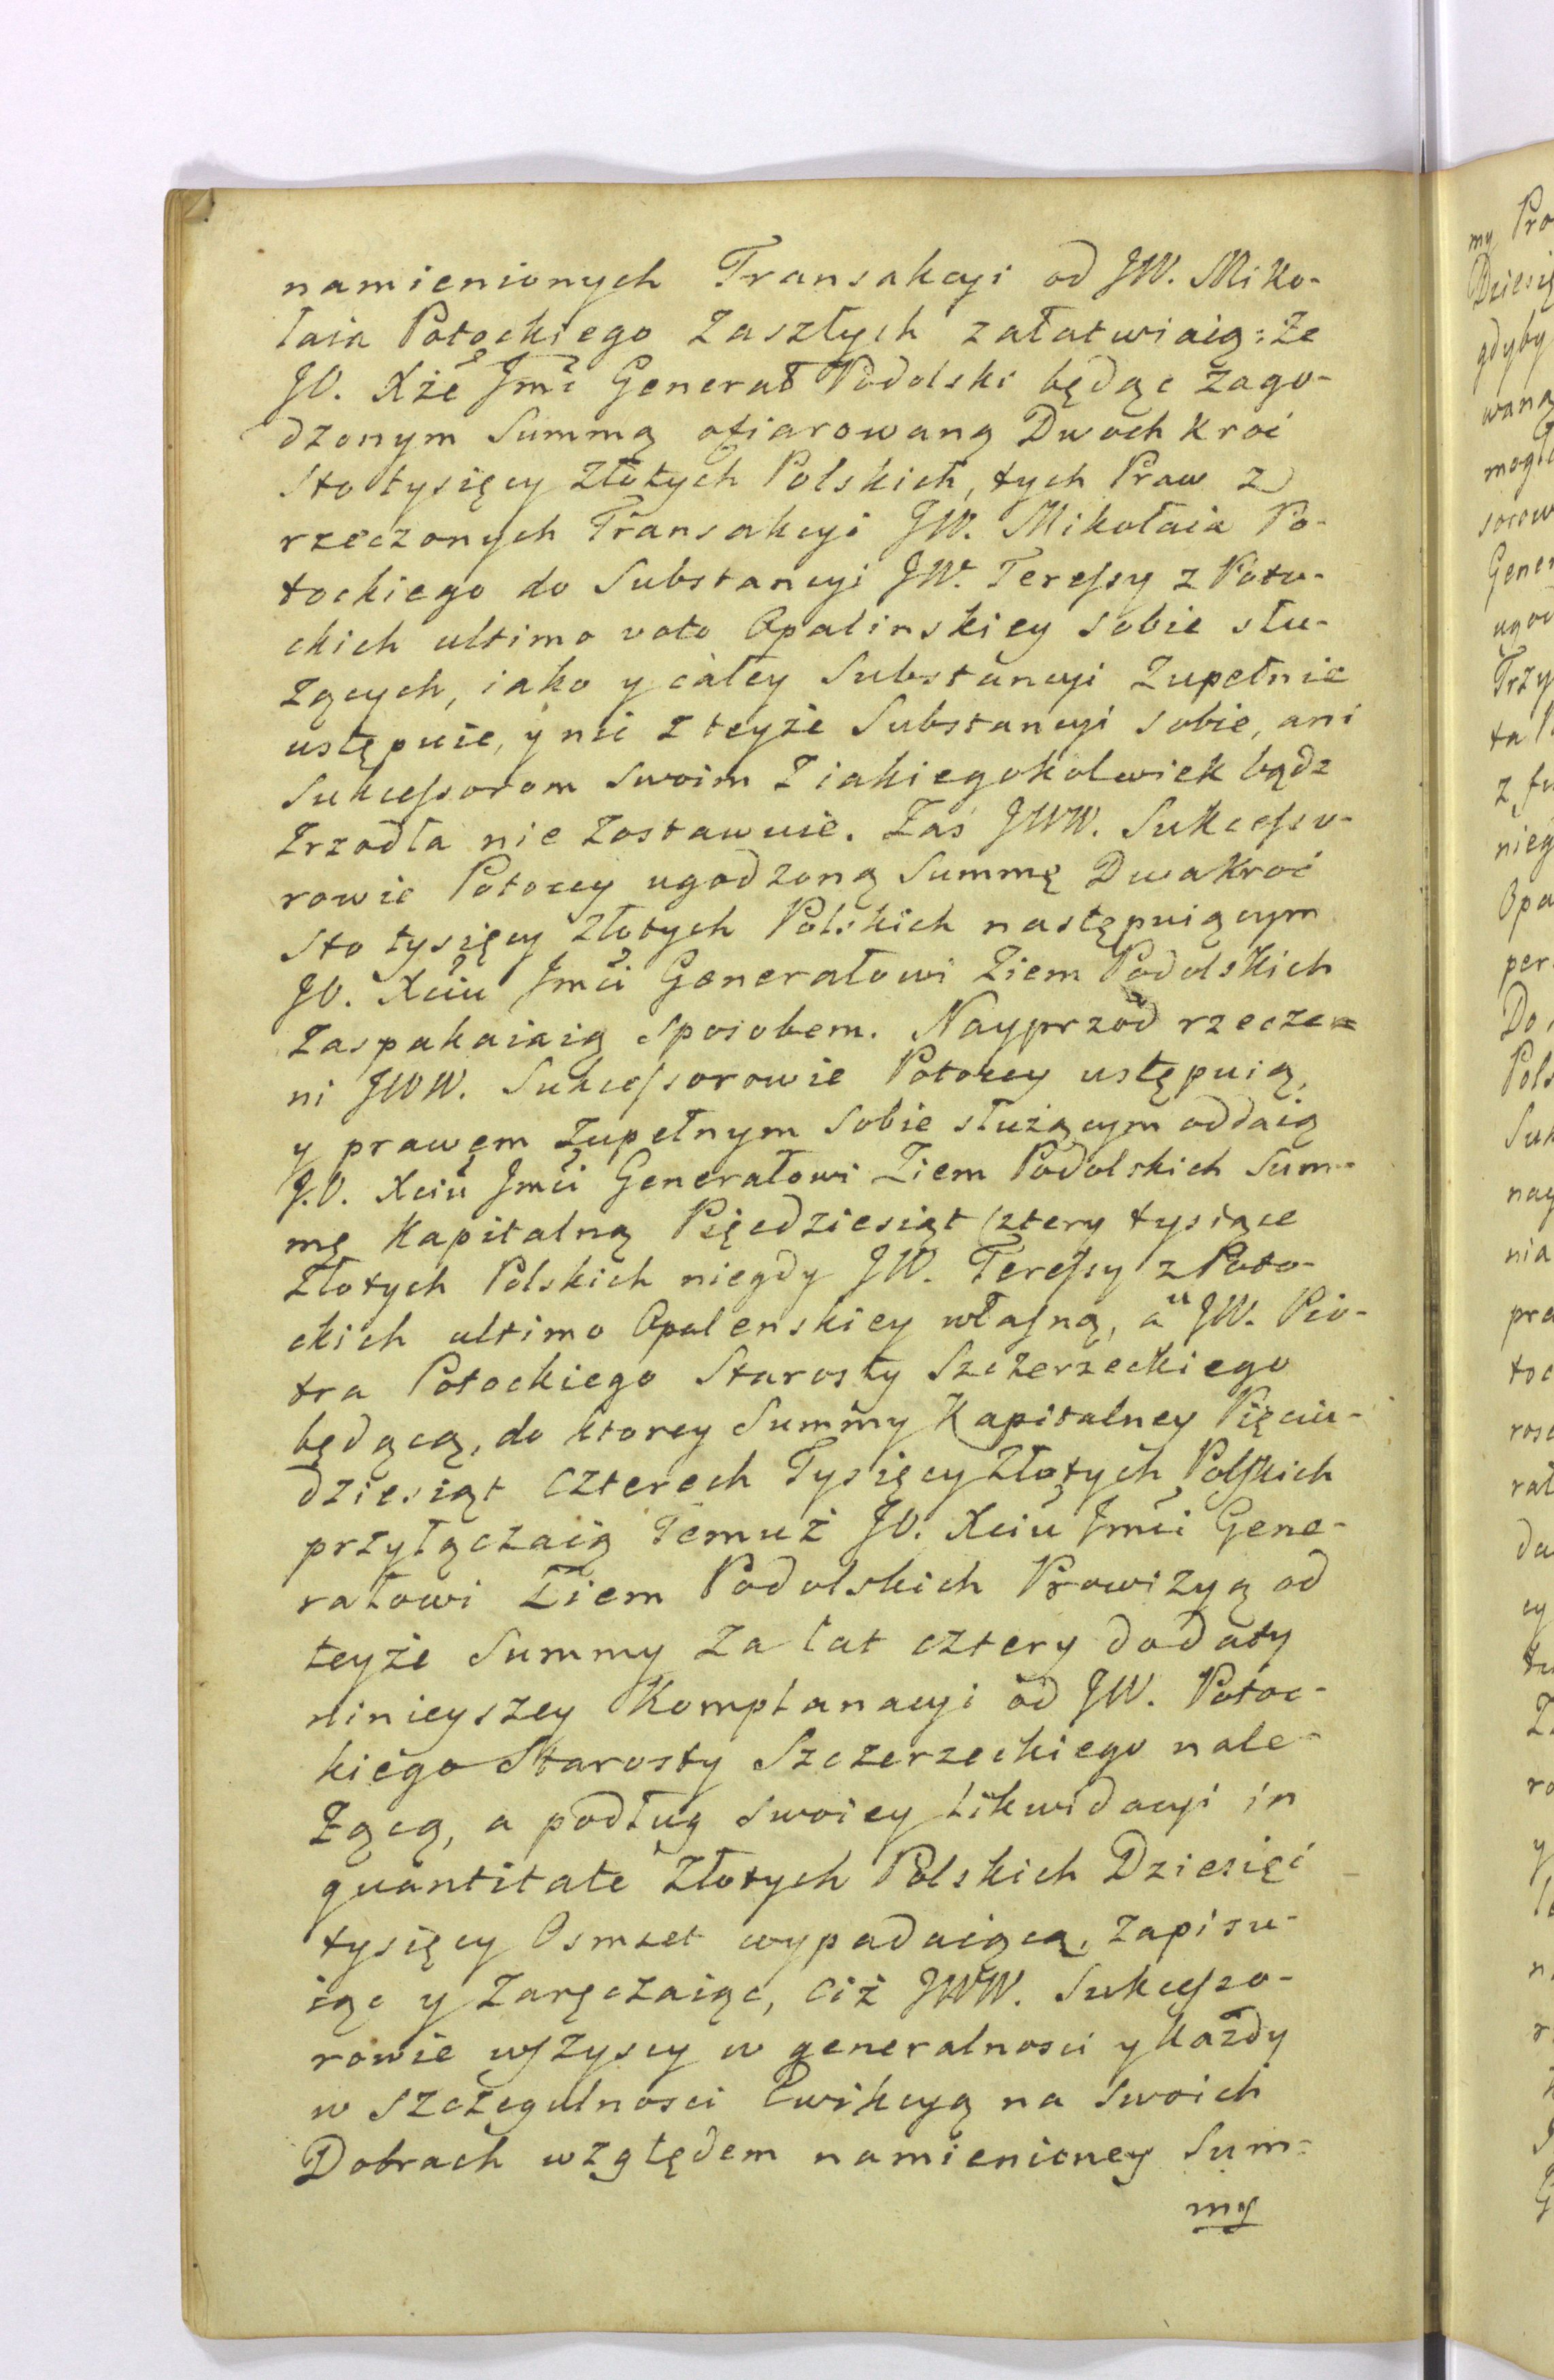 namienionych Transakcyi od JW. Miko-
łaia Potockiego Zaszłych załatwiaią: Że
JO. Xże Jmć Generał Podolski będąc Zago-
dzonym Summą ofiarowaną Dwoch kroć
Sto tysięcy Złotych Polskich, tych Praw z
rzeczonych Transakcyi JW. Mikołaia Po-
tockiego do Substancyi JW. Teressy z Poto-
ckich ultimo voto Opalinskiey sobie słu-
żących, iako y całey Substancyi Zupełnie
ustępuie, y nic z teyże Substancyi sobie, ani
Sukcessorom swoim z iakiegokolwiek bądz
Zrzodła nie Zostawuie. Zaś JWW. Sukcesso-
rowie Potoccy ugodzoną Summę Dwakroć
Sto tysięcy Złotych Polskich następuiącym
JO. Xciu Jmci Generałowi Ziem Podolskich
Zaspakaiaią sposobem. Nayprzod rzeczo-
ni JWW. Sukcessorowie Potoccy ustępuią,
y prawem Zupełnym sobie służącym oddaią
J.O. Xciu Jmci Generałowi Ziem Podolskich Sum-
mę Kapitalną Pięcdziesiąt Cztery tysiące
Złotych Polskich niegdy JW. Teressy z Poto-
ckich ultimo Opalenskiey własną, a u JW. Pio-
tra Potockiego Starosty Szczerzeckiego
będącą, do ktorey Summy Kapitalney Pięciu-
dziesiąt Czterech Tysięcy Złotych Polskich
przyłączaią Temuż JO. Xciu Jmci Gene-
rałowi Ziem Podolskich Prowizyą od
teyże Summy Za lat cztery do daty
ninieyszey Komplanacyi od JW. Potoc-
kiego Starosty Szczerzeckiego nale-
Żącą, a podług swoiey Likwidacyi in
quantitate Złotych Polskich Dziesięć
tysięcy Osmset wypadaiącą, Zapisu-
iąc y Zaręczaiąc, Ciż JWW. Sukcesso-
rowie wszyscy w generalnosci y Każdy
w Szczegulnosci Ewikcyą na swoich
Dobrach względem namienioney Sum-
my